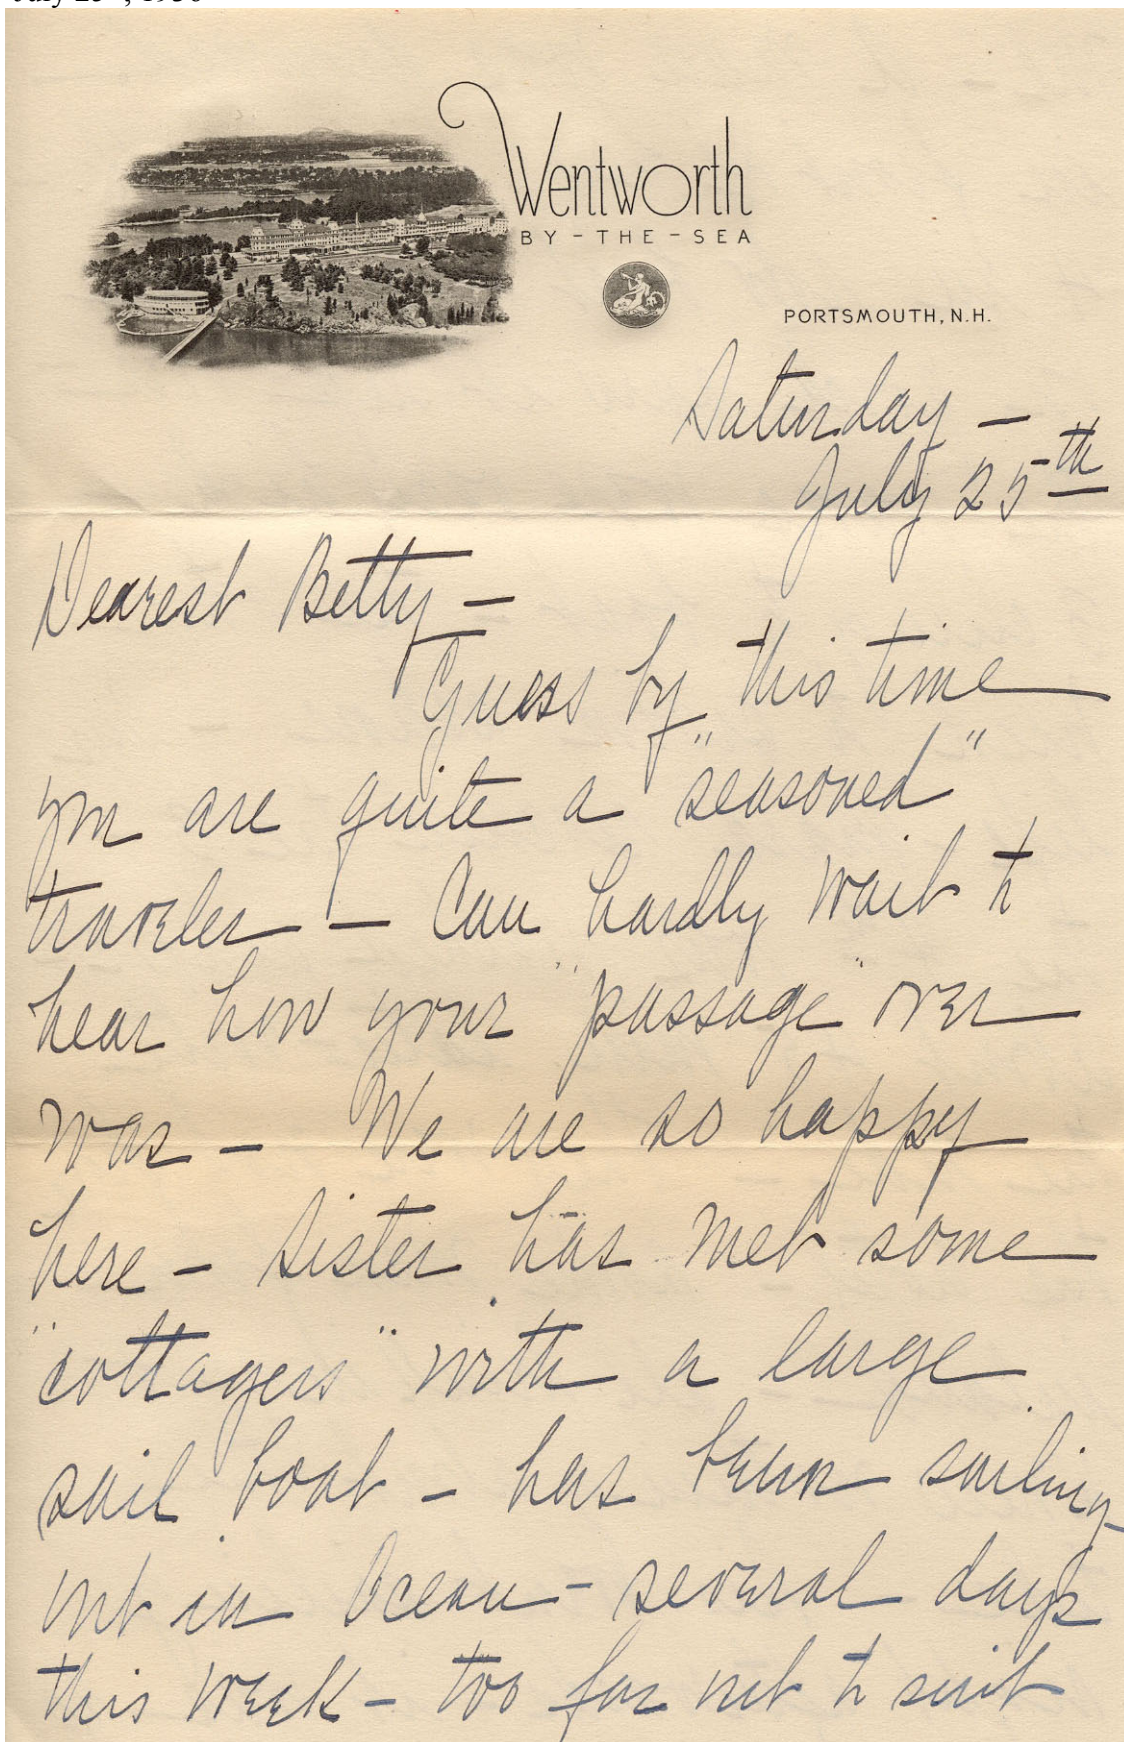 July 25th, 1936
Wentworth
BY-THE-SEA
PORTSMOUTH, N.H.
Saturday –
July 25th
Dearest Betty –
Guess by this time
you are quite a "seasoned"
traveler – Can hardly wait to
hear how your "passage" over
was – We are so happy
here – Sister has met some
"cottagers" with a large
sail boat – has been sailing
out in Ocean – several days
this week – too far out to suit